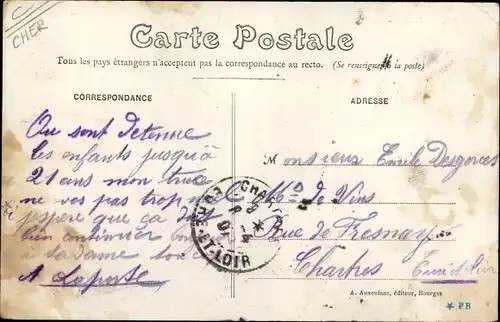 CHER
Carte Postale
Tous les pays étrangers n'acceptent pas la correspondance au recto. (Se renseigner à la poste)
CORRESPONDANCE
ADRESSE
Ou sont Detenue
les enfants jusqu'à
21 ans mon truc
ne vas pas trop
espère que ça
bien continuer
A Laporte
Monsieur Emile Desgorces
Md de Vins
Rue de Fresnay
Chartres Eure et Loir
CHA
EURE-ET-LOIR
A. Auxenfans, éditeur, Bourges
* PB